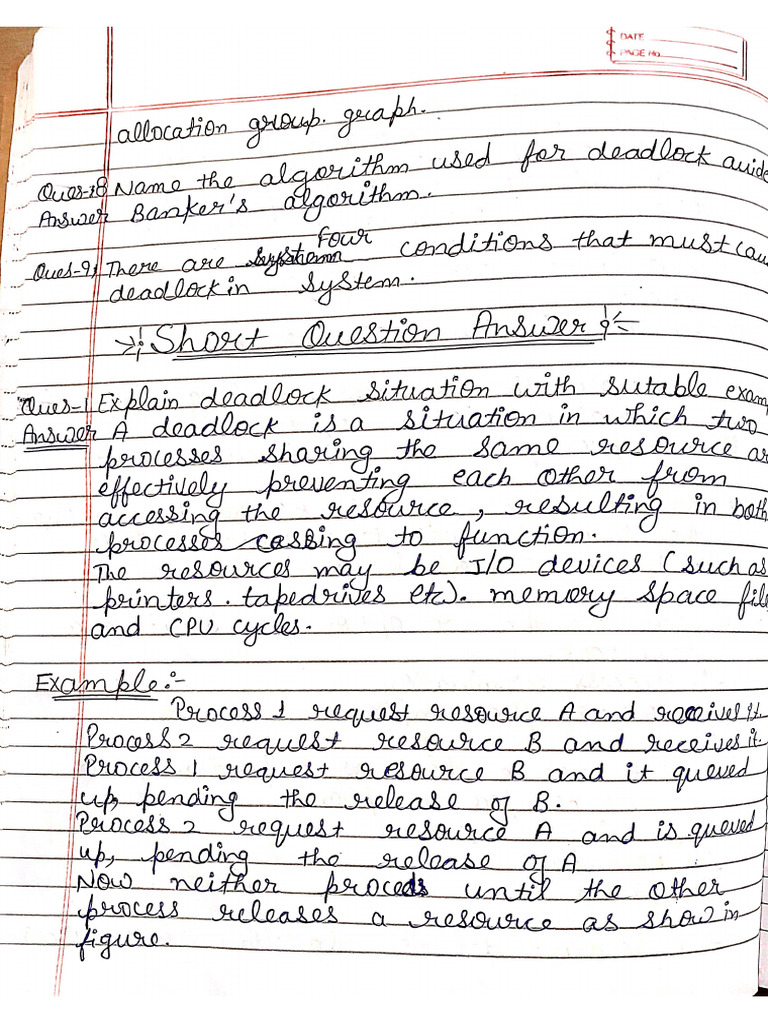 DATE
PAGE No.
allocation group. graph.
Ques-8 Name the algorithm used for deadlock avide
Answer Banker's algorithm.
four
Ques-9 There are system conditions that must cau
deadlock in system.
Short Question Answer
Ques-1 Explain deadlock situation with sutable examp
Answer A deadlock is a situation in which two
processes sharing the same resource ar
effectively preventing each other from
accessing the resource, resulting in both
processes cessing to function.
The resources may be I/O devices (such as
printers. tapedrives etc). memory space file
and CPU cycles.
Example:-
Process 1 request resource A and receives it.
Process 2 request resource B and receives it.
Process 1 request resource B and it queued
up, pending the release of B.
Process 2 request resource A and is queued
up, pending the release of A
Now neither proceds until the other
process releases a resource as show in
figure.